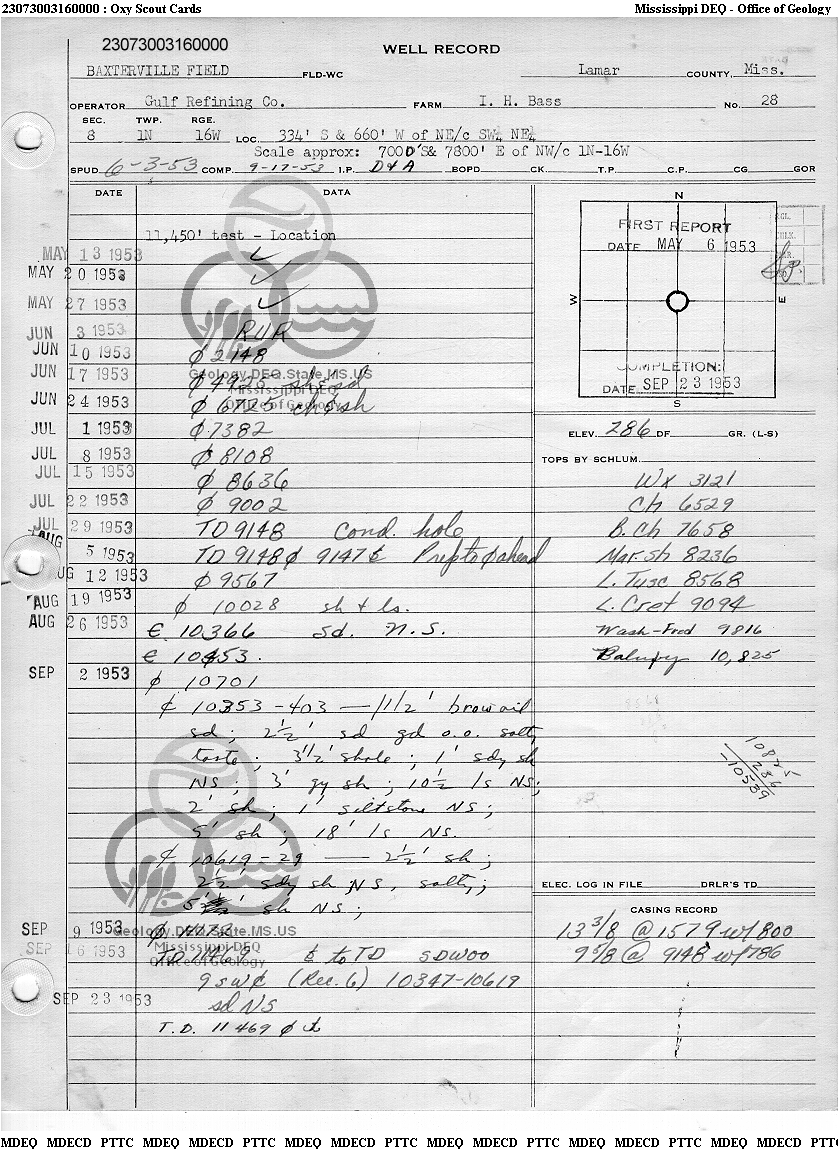 23073003160000 : Oxy Scout Cards Mississippi DEQ - Office of Geology
23073003160000
WELL RECORD
BAXTERVILLE FIELD FLD-WC Lamar COUNTY, Miss.
OPERATOR Gulf Refining Co. FARM I. H. Bass No. 28
SEC. TWP. RGE.
8 1N 16W LOC. 334' S & 660' W of NE/c SW¼ NE¼
Scale approx: 7000'S& 7800' E of NW/c 1N-16W
SPUD 6-3-53 COMP. 9-17-53 I.P. D&A BOPD CK. T.P. C.P. CG GOR
DATE DATA
11,450' test - Location
MAY 13 1953 ✓
MAY 20 1953 ✓
MAY 27 1953 ✓
JUN 3 1953 RUR
JUN 10 1953 ϕ 2148
JUN 17 1953 ϕ 4923 sh & sd
JUN 24 1953 ϕ 6725 ch & sh
JUL 1 1953 ϕ 7382
JUL 8 1953 ϕ 8108
JUL 15 1953 ϕ 8636
JUL 22 1953 ϕ 9002
JUL 29 1953 TD 9148 Cond. hole
AUG 5 1953 TD 9148 ϕ 9147 ¢ Prep to ϕ ahead
AUG 12 1953 ϕ 9567
AUG 19 1953 ϕ 10028 sh & ls.
AUG 26 1953 ¢ 10366 sd. N.S.
¢ 10453.
SEP 2 1953 ϕ 10701
¢ 10353-403 — 11½' brow oil
sd ; 2½' sd gd o.o. salty
taste ; 3½' shale ; 1' sdy sh
NS ; 3' gy sh ; 10½ ls NS ;
2' sh ; 1' siltstone NS ;
5' sh ; 18' ls NS.
¢ 10619-29 — 2½' sh ;
2½' sdy sh NS, salty ;
5' sh NS ;
SEP 9 1953
SEP 16 1953 TD 11469 ¢ to TD SDWOO
9 sw¢ (Rec. 6) 10347-10619
SEP 23 1953 sd NS
T.D. 11469 ϕ
Geology.DEQ.State.MS.US
Mississippi DEQ
Office of Geology
Geology.DEQ.State.MS.US
Mississippi DEQ
Office of Geology
N
W
E
S
FIRST REPORT
DATE MAY 6 1953
COMPLETION:
DATE SEP 23 1953
ELEV. 286 DF GR. (L-S)
TOPS BY SCHLUM.
Wx 3121
Ch 6529
B. Ch 7658
Mar. sh 8236
L. Tusc 8568
L. Cret 9094
Wash-Fred 9816
Paluxy 10,825
10825
286
-10539
ELEC. LOG IN FILE DRLR'S TD
CASING RECORD
13 3/8 @ 1579 w/ 800
9 5/8 @ 9148 w/ 786
MDEQ MDECD PTTC MDEQ MDECD PTTC MDEQ MDECD PTTC MDEQ MDECD PTTC MDEQ MDECD PTTC MDEQ MDECD PTT